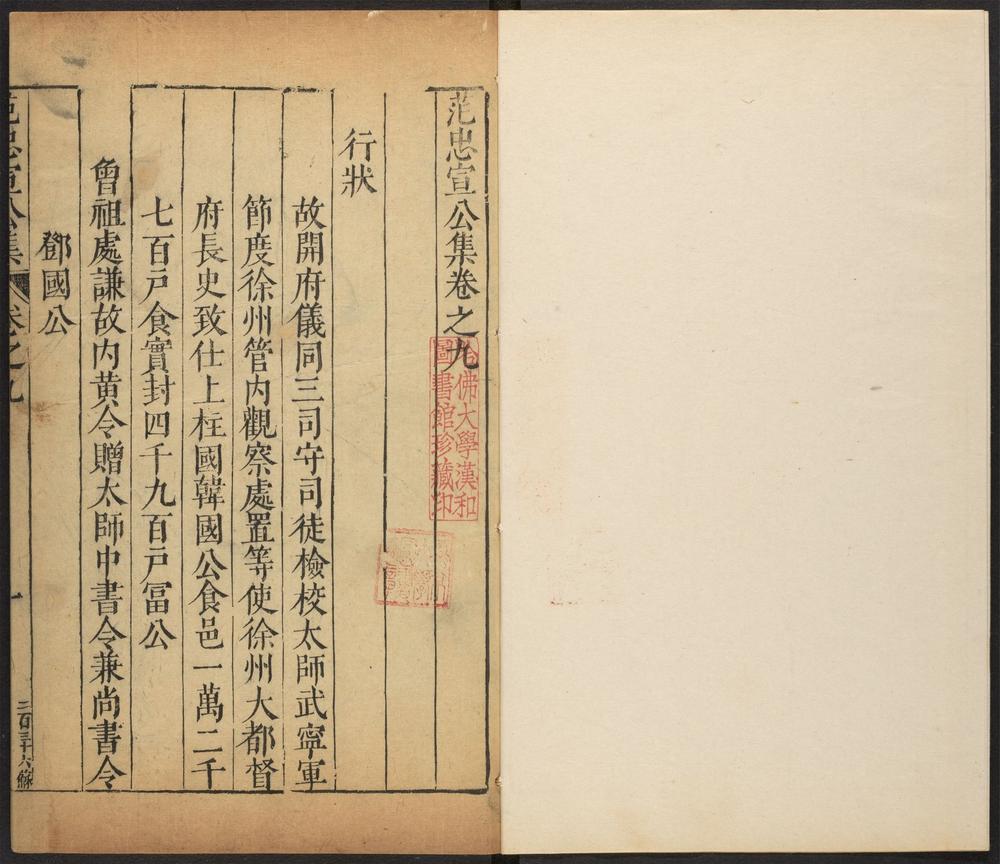 范忠宣公集卷之九
哈佛大學漢和
圖書館珍藏印
行狀
故開府儀同三司守司徒檢校太師武寧軍
節度徐州管内觀察處置等使徐州大都督
府長史致仕上柱國韓國公食邑一萬二千
七百戸食實封四千九百戸冨公
曾祖處謙故内黄令贈太師中書令兼尚書令
鄧國公
范忠宣公集 卷之九 一
三百三十六